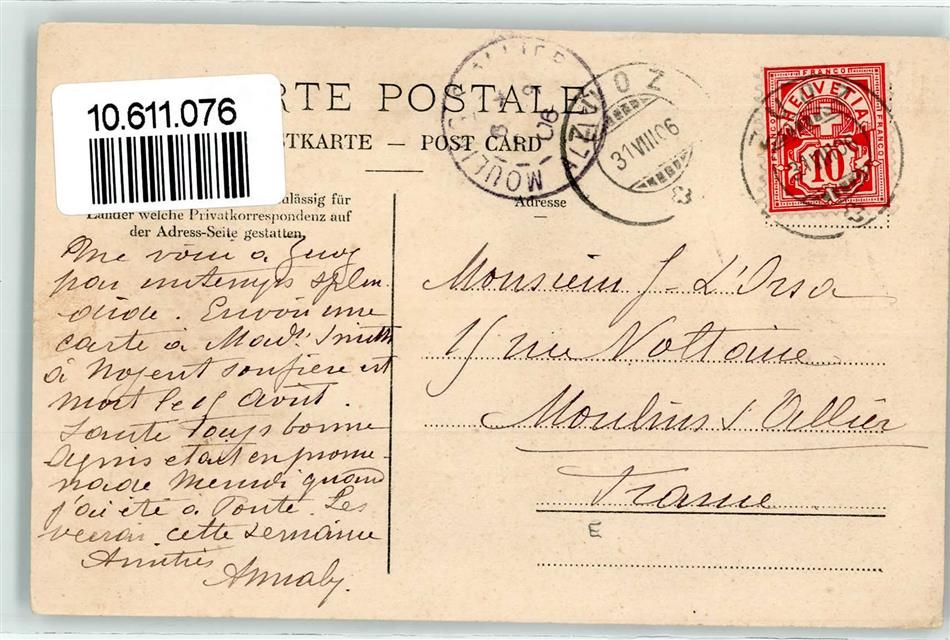 10.611.076
RTE POSTALE
STKARTE — POST CARD
ulässig für
Länder welche Privatkorrespondenz auf
der Adress-Seite gestatten.
Adresse
MOULINS ALLIER
06
ZUOZ
31 VIII 06
FRANCO
HELVETIA
10
ZUOZ
31 VIII 06
Me voici à Zuoz
par un temps splen
dide. Envoie une
carte à Mad.
à Nogent son père est
mort le 15 Août.
Santé toujs bonne
Agnès était en prome-
nade Mercredi quand
j'ai été à Ponte. Les
verrai cette semaine
Amitiés
Monsieur J. L'Orsa
15 rue Voltaire
Moulins s/ Allier
France
E